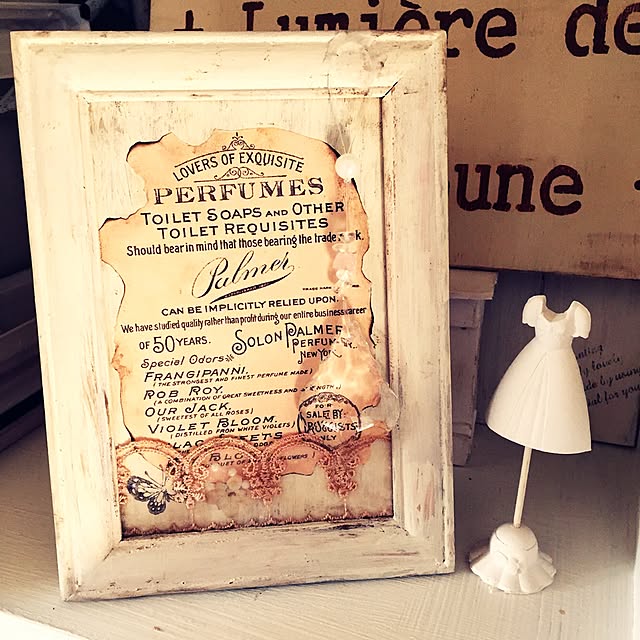 + Lumière de
une
LOVERS OF EXQUISITE
PERFUMES
TOILET SOAPS AND OTHER
TOILET REQUISITES
Should bear in mind that those bearing the trade k.
Palmer
TRADE MARK
CAN BE IMPLICITLY RELIED UPON.
We have studied quality rather than profit during our entire business career
OF 50 YEARS. SOLON PALMER
PERFUM
NEW YORK
Special Odors
FRANGIPANNI.
(THE STRONGEST AND FINEST PERFUME MADE)
ROB ROY.
(A COMBINATION OF GREAT SWEETNESS AND
OUR JACK.
(SWEETEST OF ALL ROSES)
VIOLET BLOOM.
(DISTILLED FROM WHITE VIOLETS)
FOR
SALE BY
DRUGGISTS
NLY
BLO
FLOWERS)